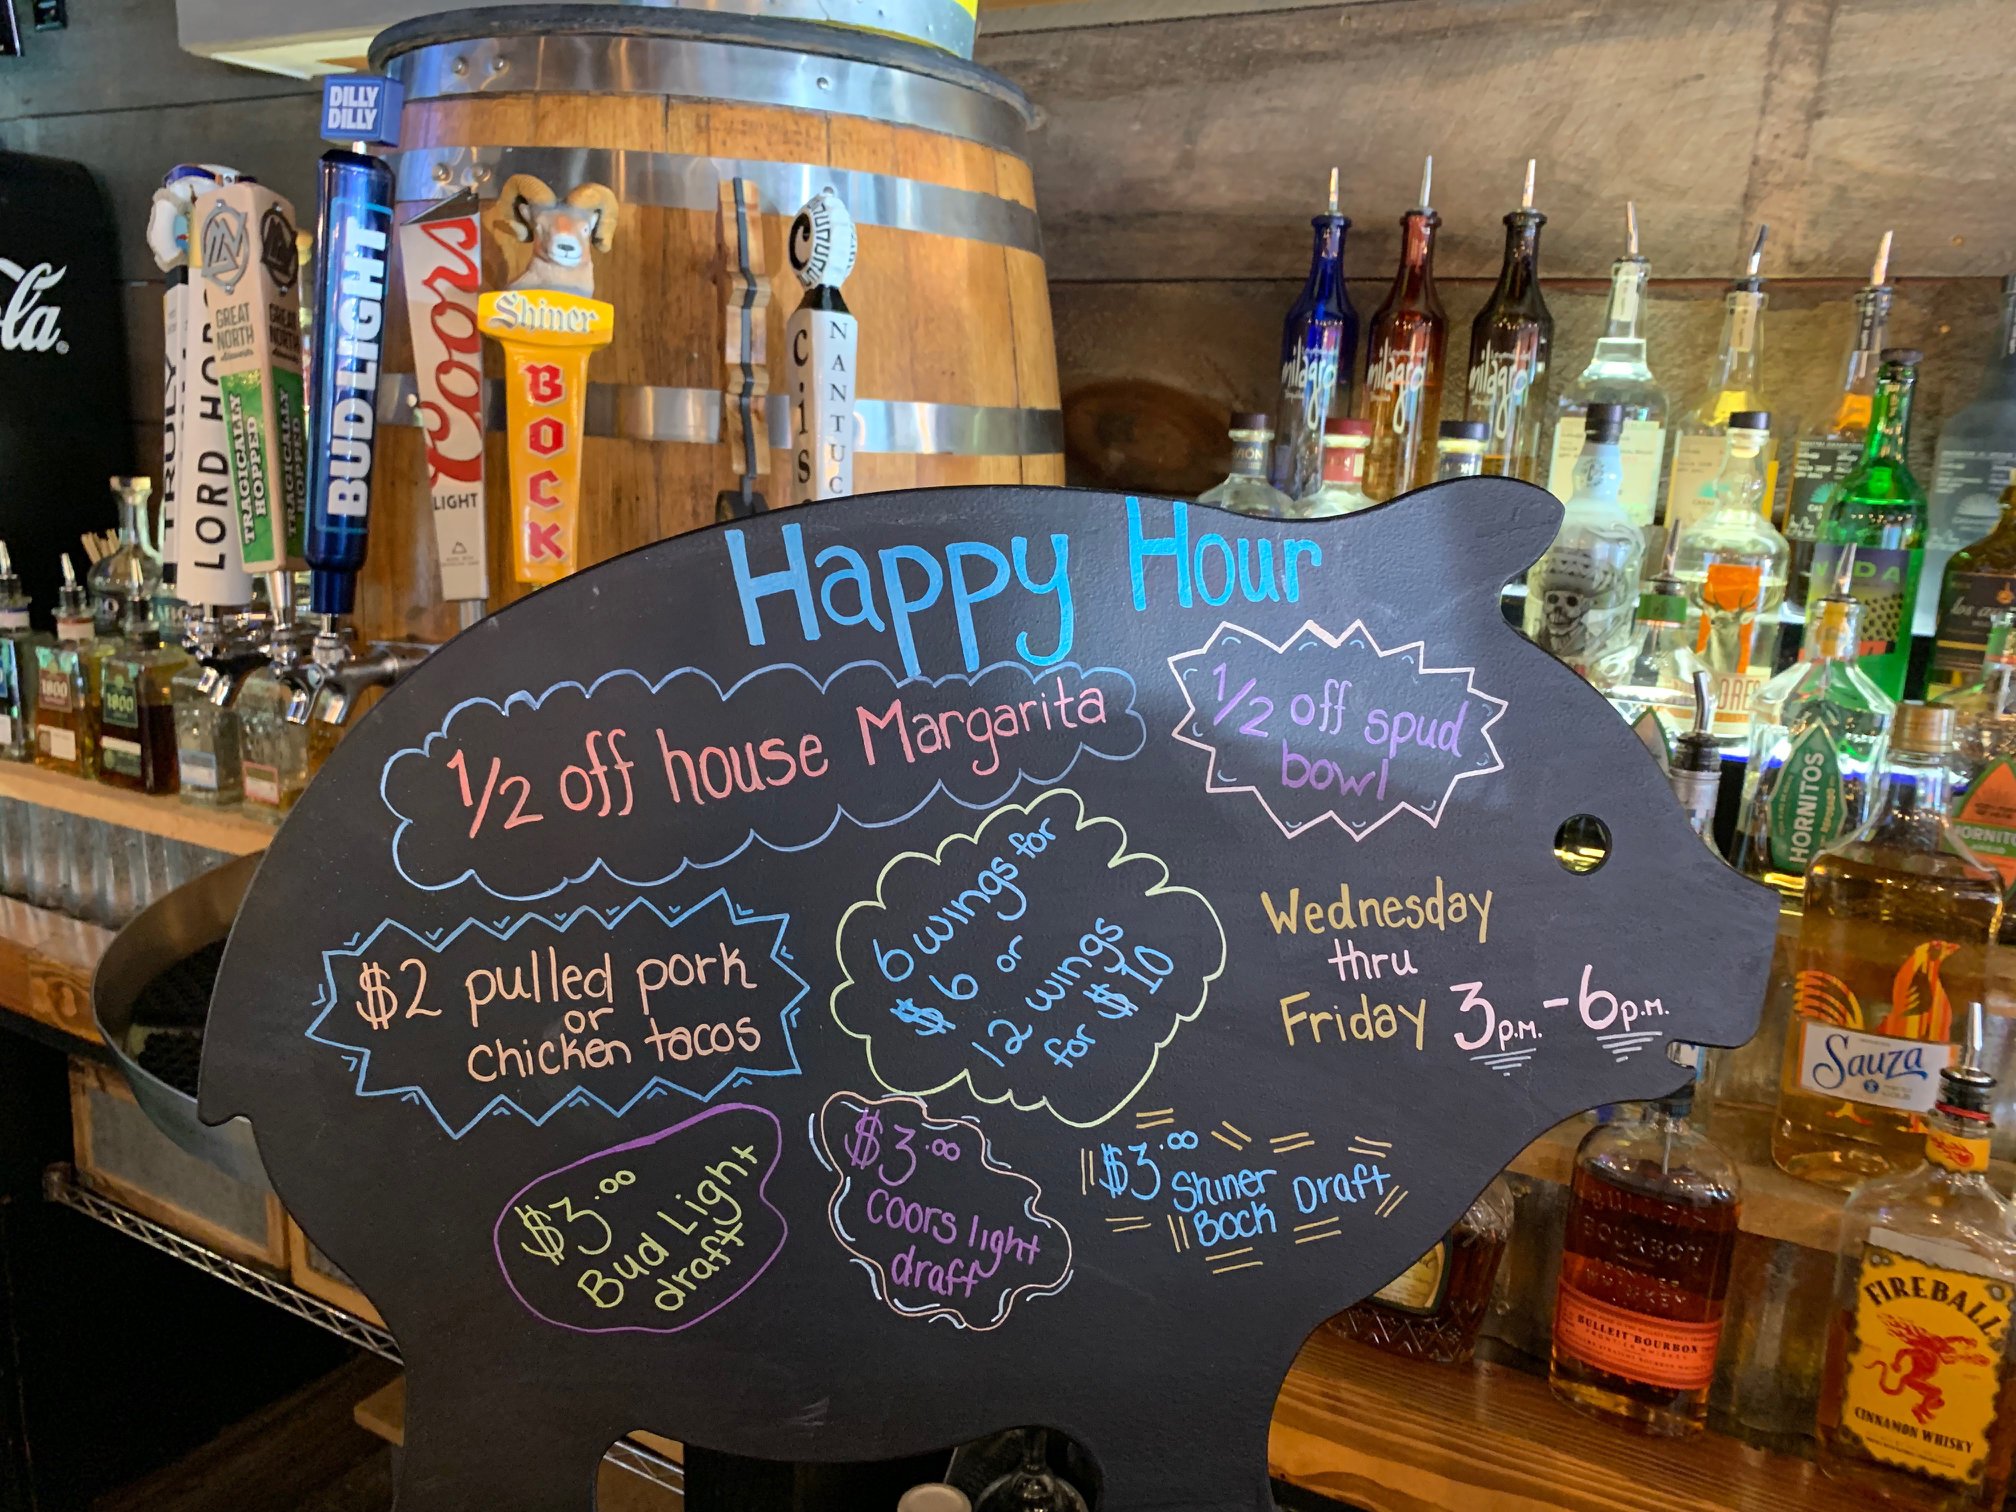 DILLY
DILLY
la
TRULY
LORD HO
GREAT
NORTH
TRAGICALLY
HOPPED
GREAT
NORTH
TRAGICALLY
HOPPED
BUD LIGHT
Coors
LIGHT
Shiner
BOCK
NANTUC
milagro
milagro
milagro
1800
1800
HORNITOS
Sauza
BULLEIT
BOURBON
WHISKEY
BULLEIT BOURBON
FRONTIER WHISKEY
FIREBALL
CINNAMON WHISKY
Happy Hour
1/2 off house Margarita
1/2 off spud
bowl
$2 pulled pork
or
chicken tacos
6 wings for
$6 or
12 wings
for $10
Wednesday
thru
Friday 3p.m.-6p.m.
$3.00
Bud Light
draft
$3.00
coors light
draft
$3.00 Shiner
Bock Draft